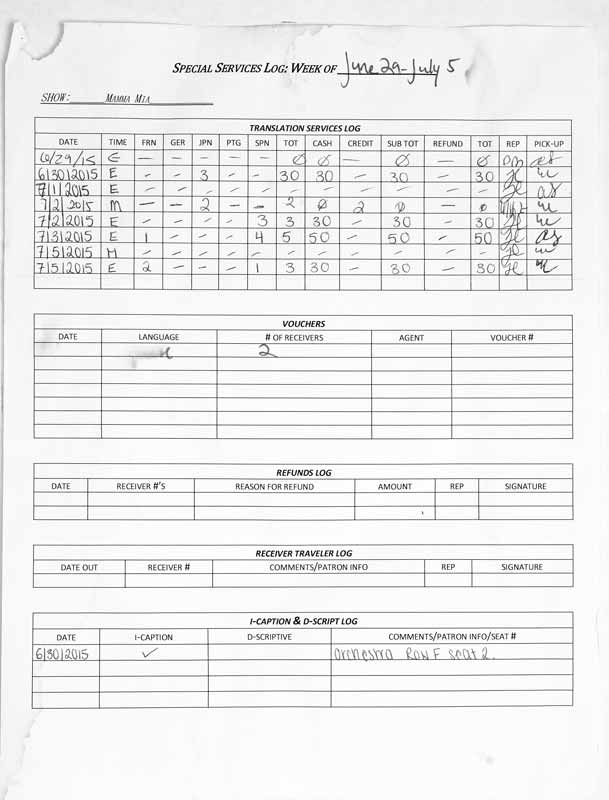 SPECIAL SERVICES LOG: WEEK OF June 29-July 5
SHOW: MAMMA MIA
TRANSLATION SERVICES LOG
DATE TIME FRN GER JPN PTG SPN TOT CASH CREDIT SUB TOT REFUND TOT REP PICK-UP
6/29/15 E — — — — — Ø Ø — Ø — Ø
6/30/2015 E - - 3 - - 30 30 - 30 - 30 JL
7/1/2015 E - - - - - - - - - - - JL as
7/2/2015 M — - 2 - - 2 Ø 2 Ø - Ø
7/2/2015 E - - - - 3 3 30 - 30 - 30 JL
7/3/2015 E 1 - - - 4 5 50 - 50 - 50 JL as
7/5/2015 M - - - - - - - - - - - JL
7/5/2015 E 2 - - - 1 3 30 - 30 - 30 JL
VOUCHERS
DATE LANGUAGE # OF RECEIVERS AGENT VOUCHER #
2
REFUNDS LOG
DATE RECEIVER #'S REASON FOR REFUND AMOUNT REP SIGNATURE
RECEIVER TRAVELER LOG
DATE OUT RECEIVER # COMMENTS/PATRON INFO REP SIGNATURE
I-CAPTION & D-SCRIPT LOG
DATE I-CAPTION D-SCRIPTIVE COMMENTS/PATRON INFO/SEAT #
6/30/2015 ✓ Orchestra Row F seat 2.